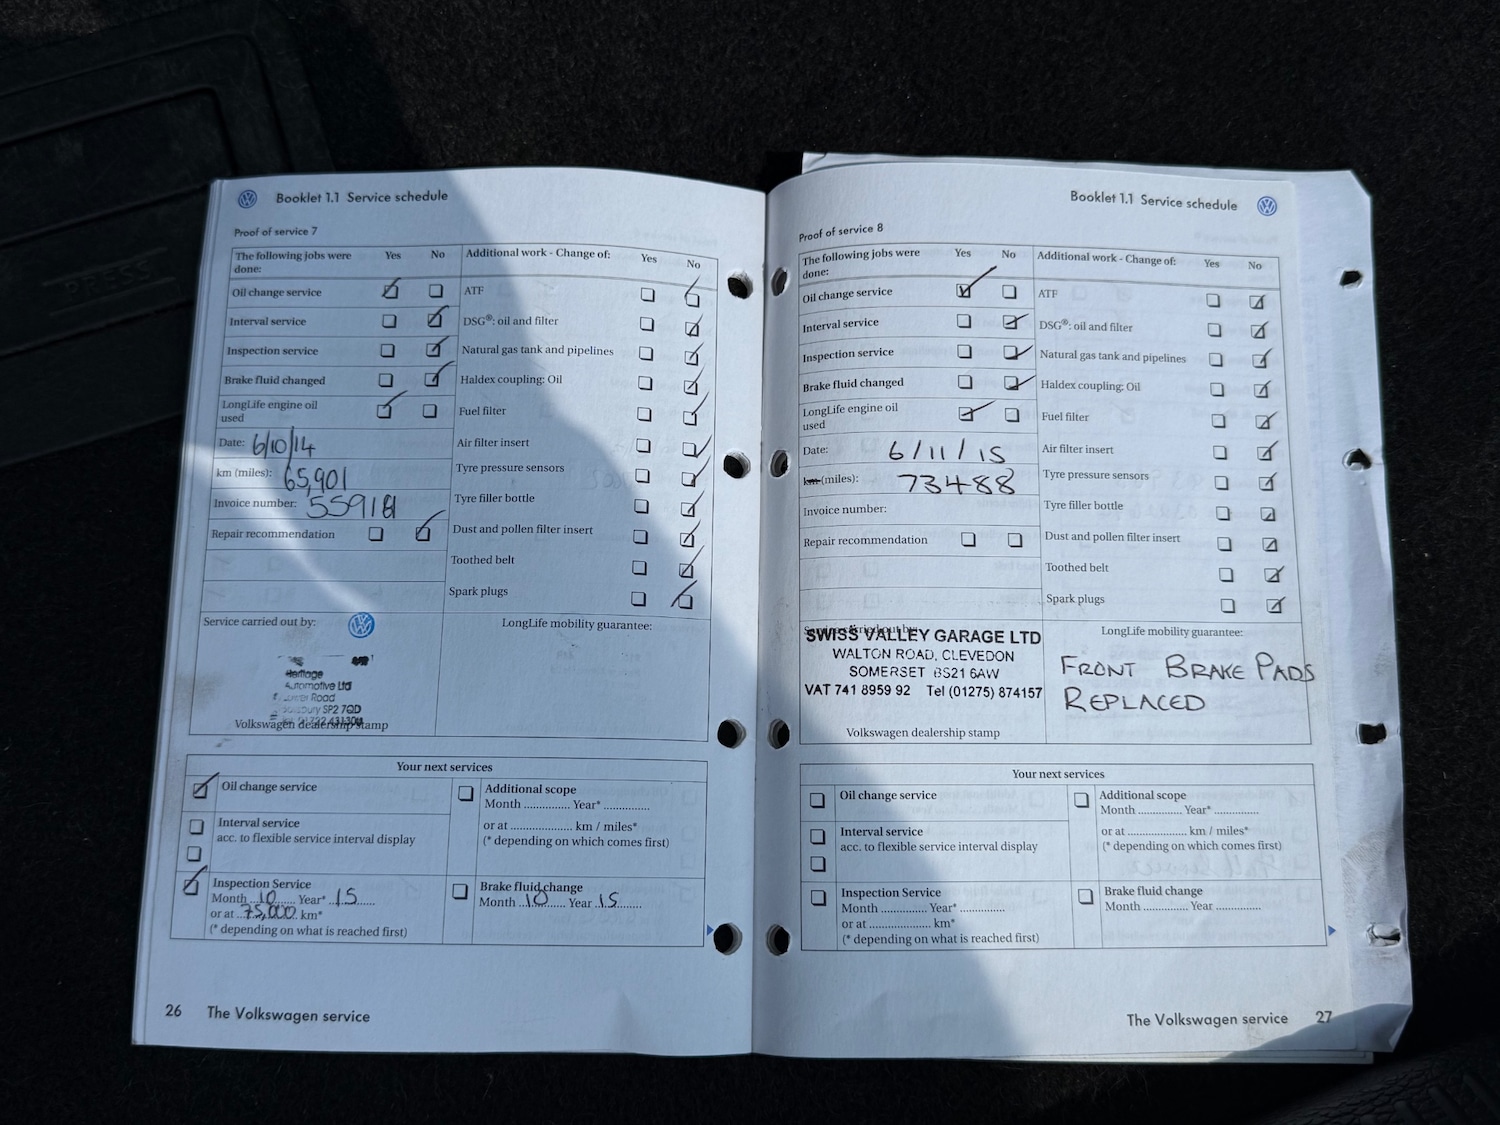 Booklet 1.1 Service schedule
Proof of service 7
The following jobs were done: Yes No
Oil change service
Interval service
Inspection service
Brake fluid changed
LongLife engine oil used
Date: 6/10/14
km (miles): 65,901
Invoice number:
Repair recommendation
Additional work - Change of: Yes No
ATF
DSG®: oil and filter
Natural gas tank and pipelines
Haldex coupling: Oil
Fuel filter
Air filter insert
Tyre pressure sensors
Tyre filler bottle
Dust and pollen filter insert
Toothed belt
Spark plugs
Service carried out by:
Heritage
Automotive Ltd
Road
SP2 7QD
Volkswagen dealership stamp
LongLife mobility guarantee:
Your next services
Oil change service
Interval service
acc. to flexible service interval display
Inspection Service
Month 10 Year* 15
or at 75,000 km*
(* depending on what is reached first)
Additional scope
Month .............. Year* ..............
or at .................... km / miles*
(* depending on which comes first)
Brake fluid change
Month 10 Year 15
26 The Volkswagen service
Booklet 1.1 Service schedule
Proof of service 8
The following jobs were done: Yes No
Oil change service
Interval service
Inspection service
Brake fluid changed
LongLife engine oil used
Date: 6/11/15
km (miles): 73488
Invoice number:
Repair recommendation
Additional work - Change of: Yes No
ATF
DSG®: oil and filter
Natural gas tank and pipelines
Haldex coupling: Oil
Fuel filter
Air filter insert
Tyre pressure sensors
Tyre filler bottle
Dust and pollen filter insert
Toothed belt
Spark plugs
Service carried out by:
SWISS VALLEY GARAGE LTD
WALTON ROAD, CLEVEDON
SOMERSET BS21 6AW
VAT 741 8959 92 Tel (01275) 874157
Volkswagen dealership stamp
LongLife mobility guarantee:
FRONT BRAKE PADS
REPLACED
Your next services
Oil change service
Interval service
acc. to flexible service interval display
Inspection Service
Month .............. Year* ..............
or at .................... km*
(* depending on what is reached first)
Additional scope
Month .............. Year* ..............
or at .................... km / miles*
(* depending on which comes first)
Brake fluid change
Month .............. Year ..............
The Volkswagen service 27